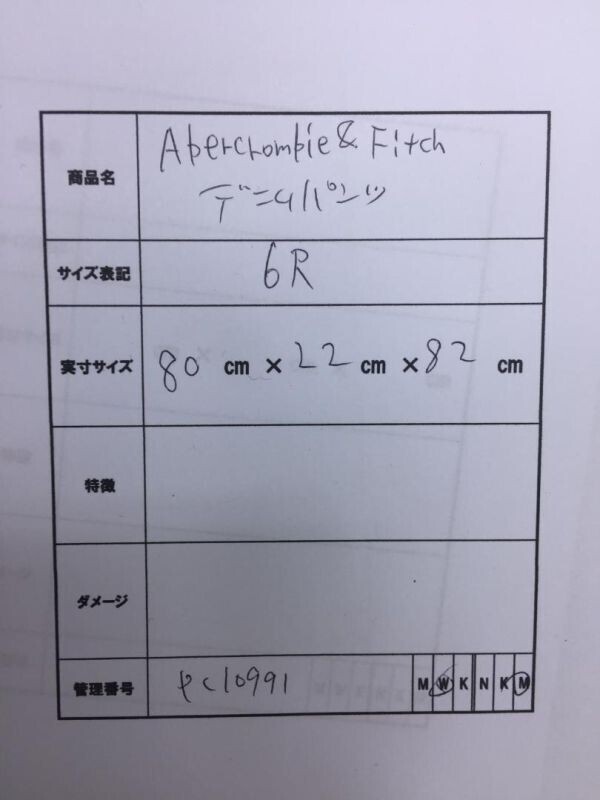 商品名 Abercrombie & Fitch
デニムパンツ
サイズ表記 6R
実寸サイズ 80 cm × 22 cm × 82 cm
特徴
ダメージ
管理番号 PC10991 M W K N K M